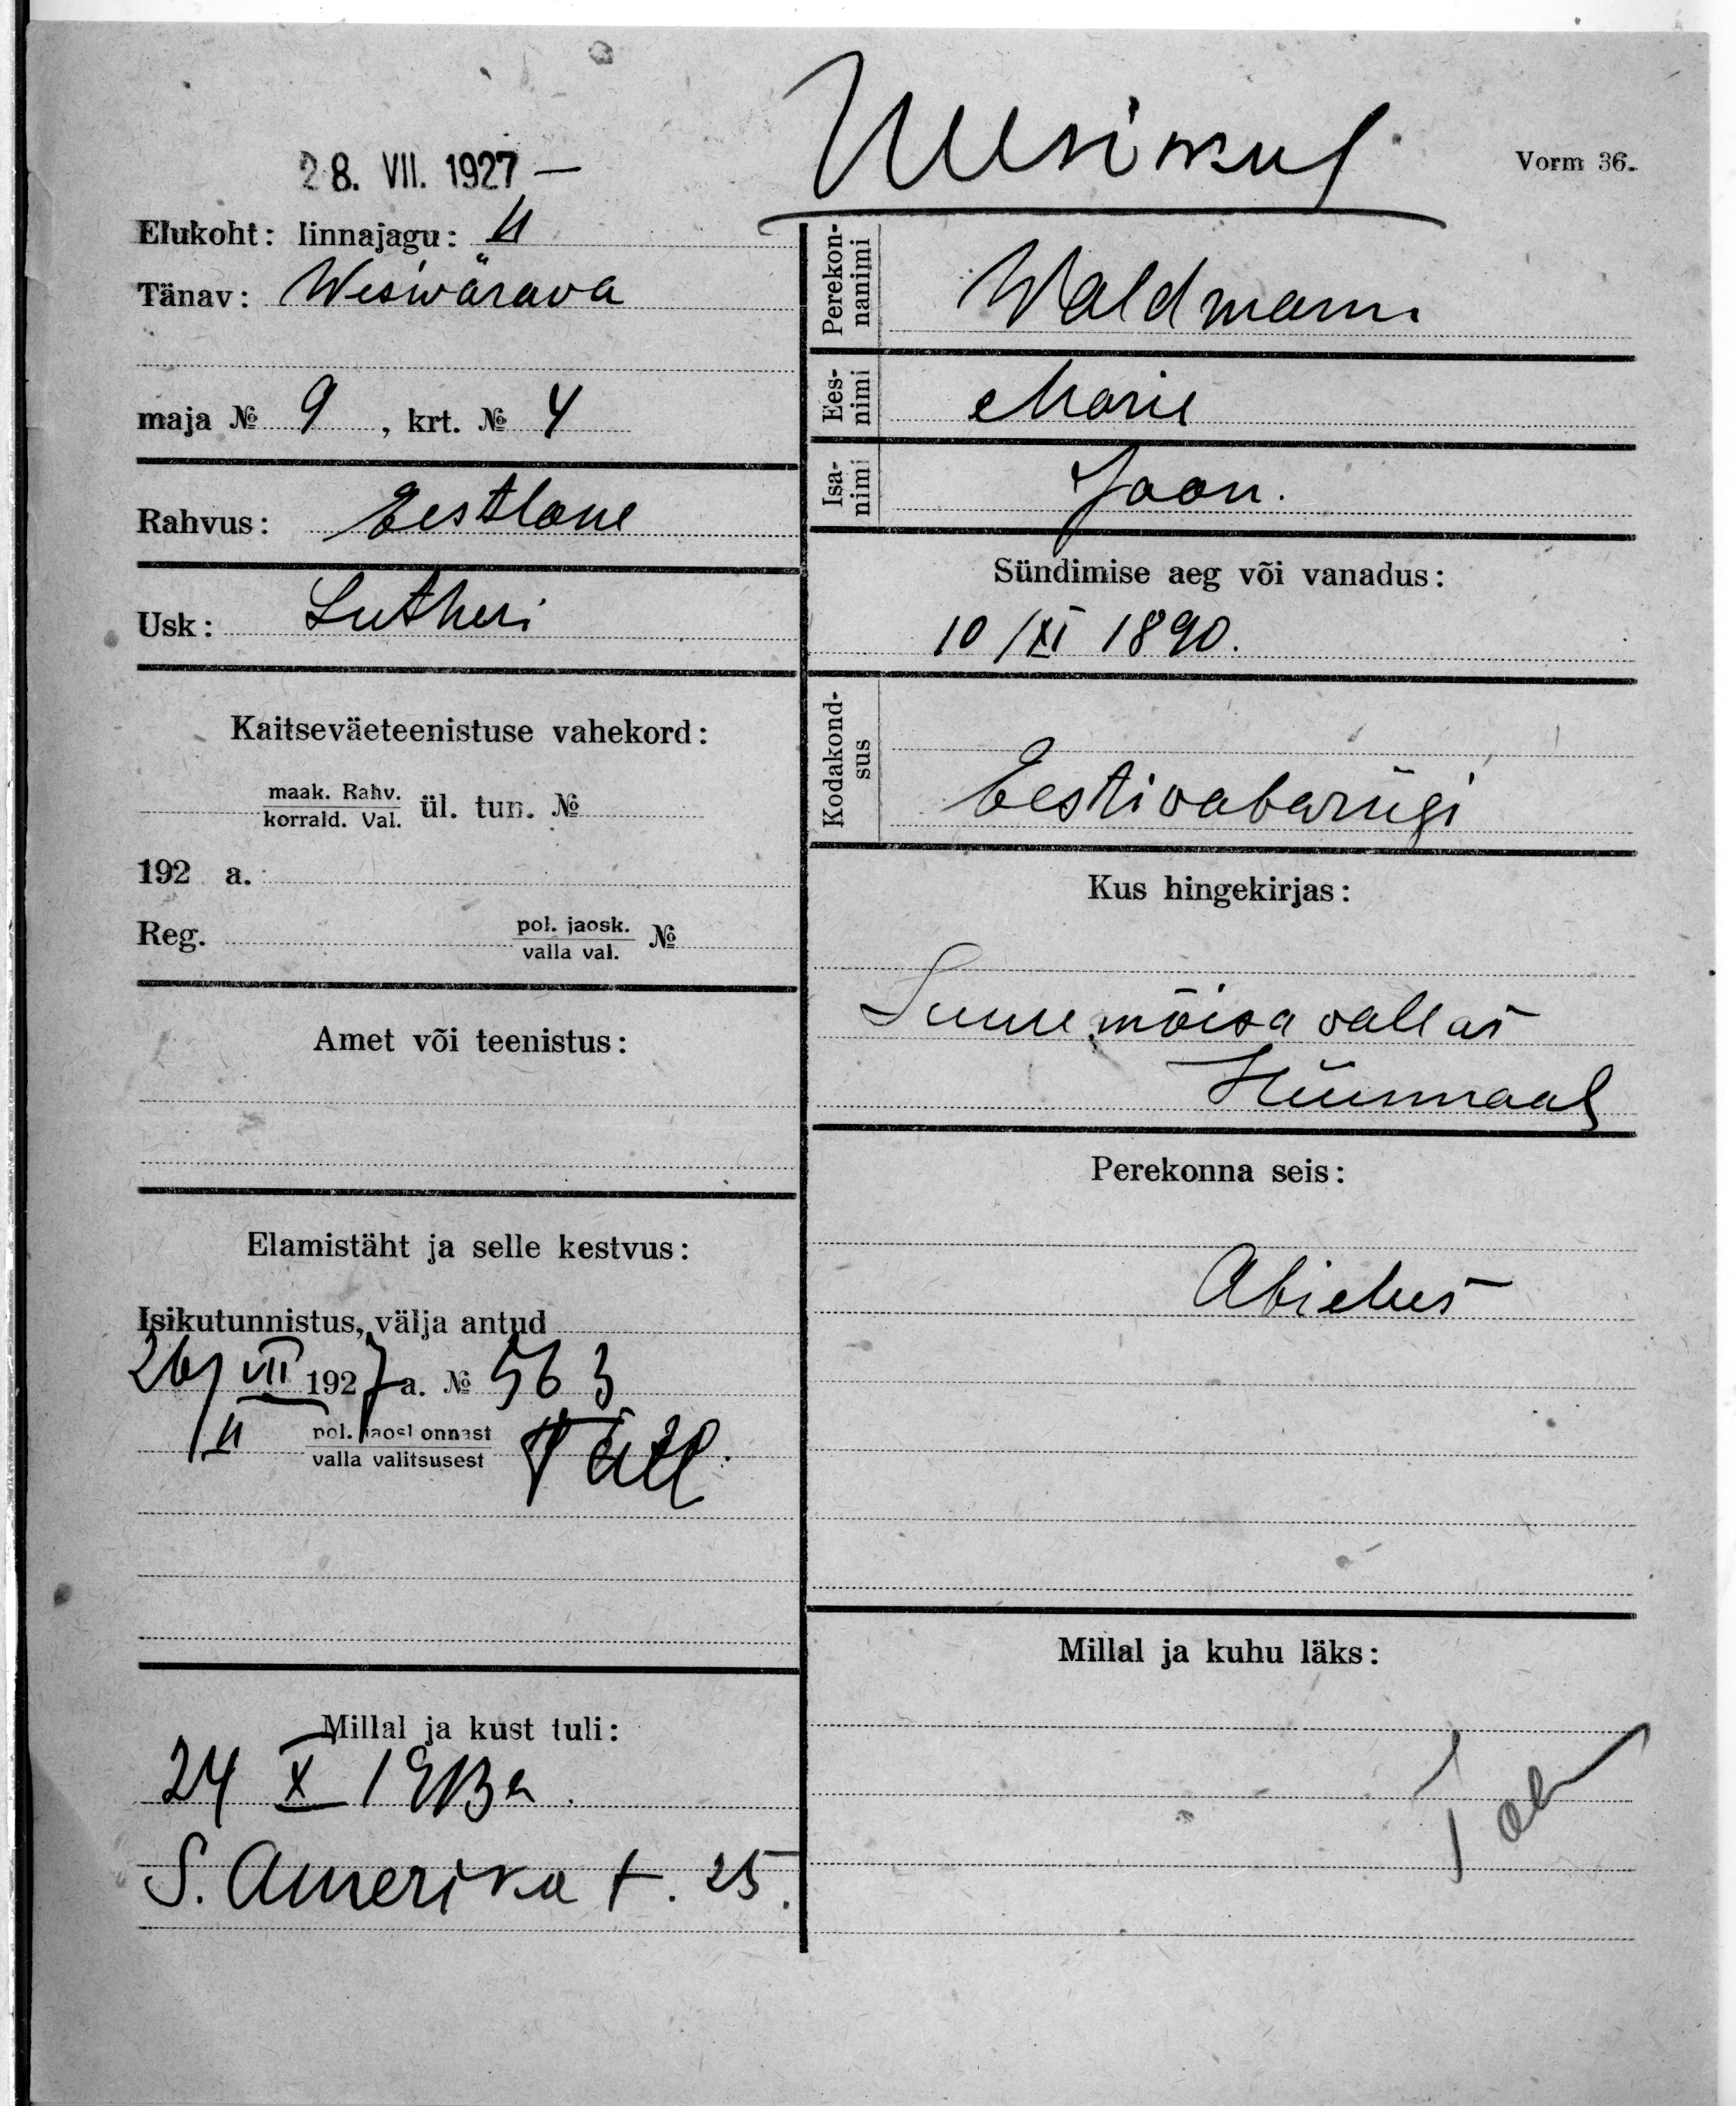 28. VII. 1927 —
Vorm 36.
Elukoht: linnajagu: II
Tänav: Wesiwärava
maja № 9, krt. № 4
Rahvus: Eestlane
Usk: Lutheri
Kaitseväeteenistuse vahekord:
maak. Rahv.
korrald. Val. ül. tun. №
192 a.
Reg. pol. jaosk.
valla val. №
Amet või teenistus:
Elamistäht ja selle kestvus:
Isikutunnistus, välja antud
26/VII 1927 a. № 563
II pol. jaoskonnast
valla valitsusest Tall.
Millal ja kust tuli:
24 X
S. Amerika t. 25.
Perekonnanimi Waldmann
Eesnimi Marie
Isanimi Jaan.
Sündimise aeg või vanadus:
10/XI 1890.
Kodakondsus
Eestivabariigi
Kus hingekirjas:
Suuremõisa vallas
Hiiumaal
Perekonna seis:
Abielus
Millal ja kuhu läks: